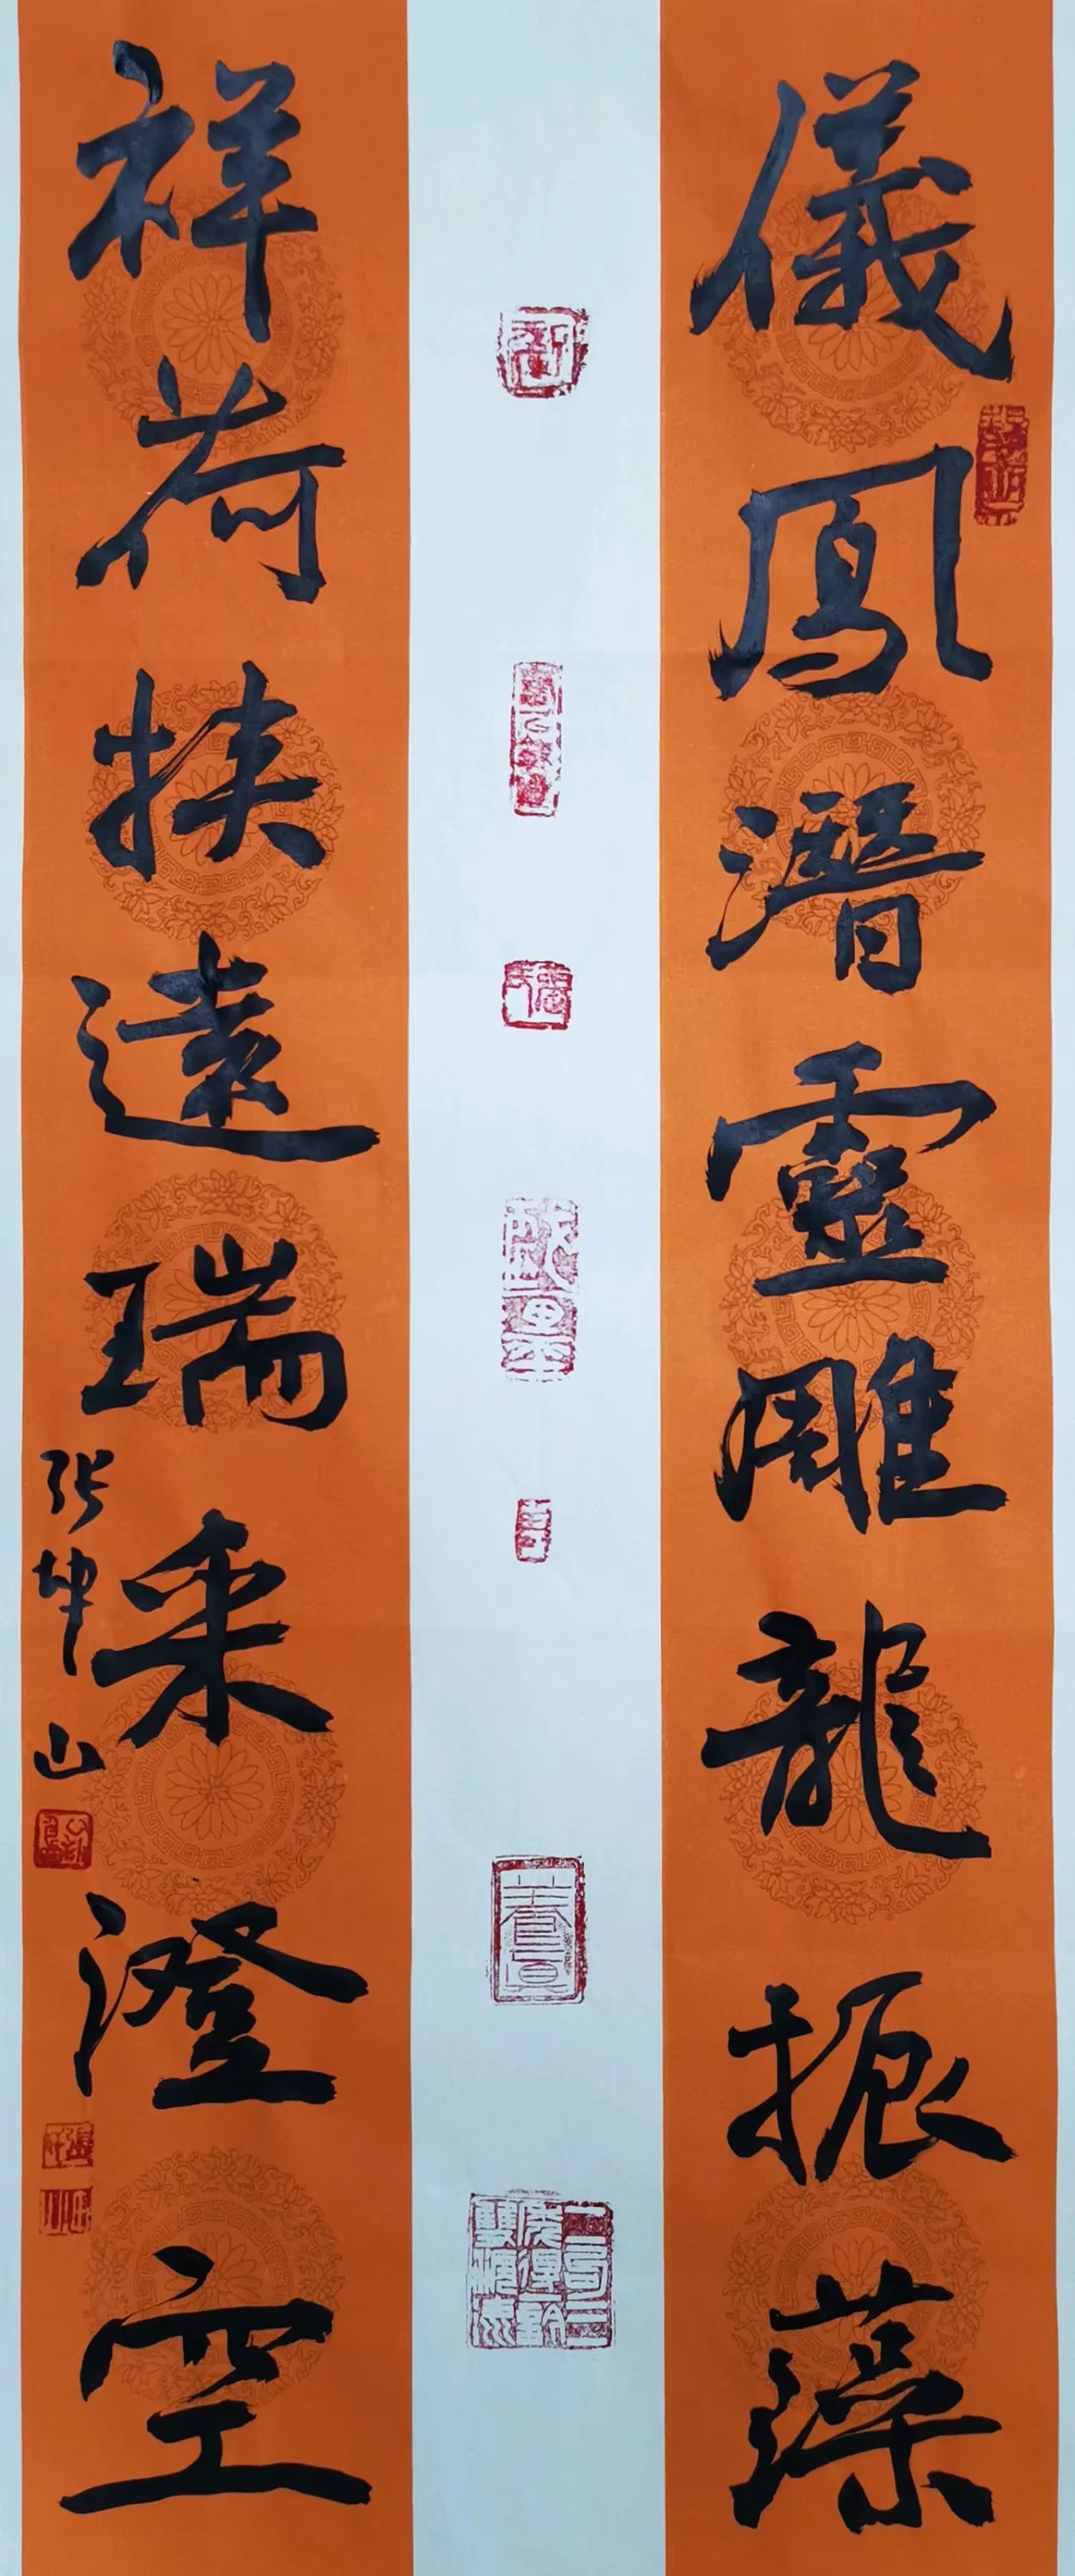 儀鳳潛靈雕龍振藻
祥荷挾遠瑞采澄空
張坤山